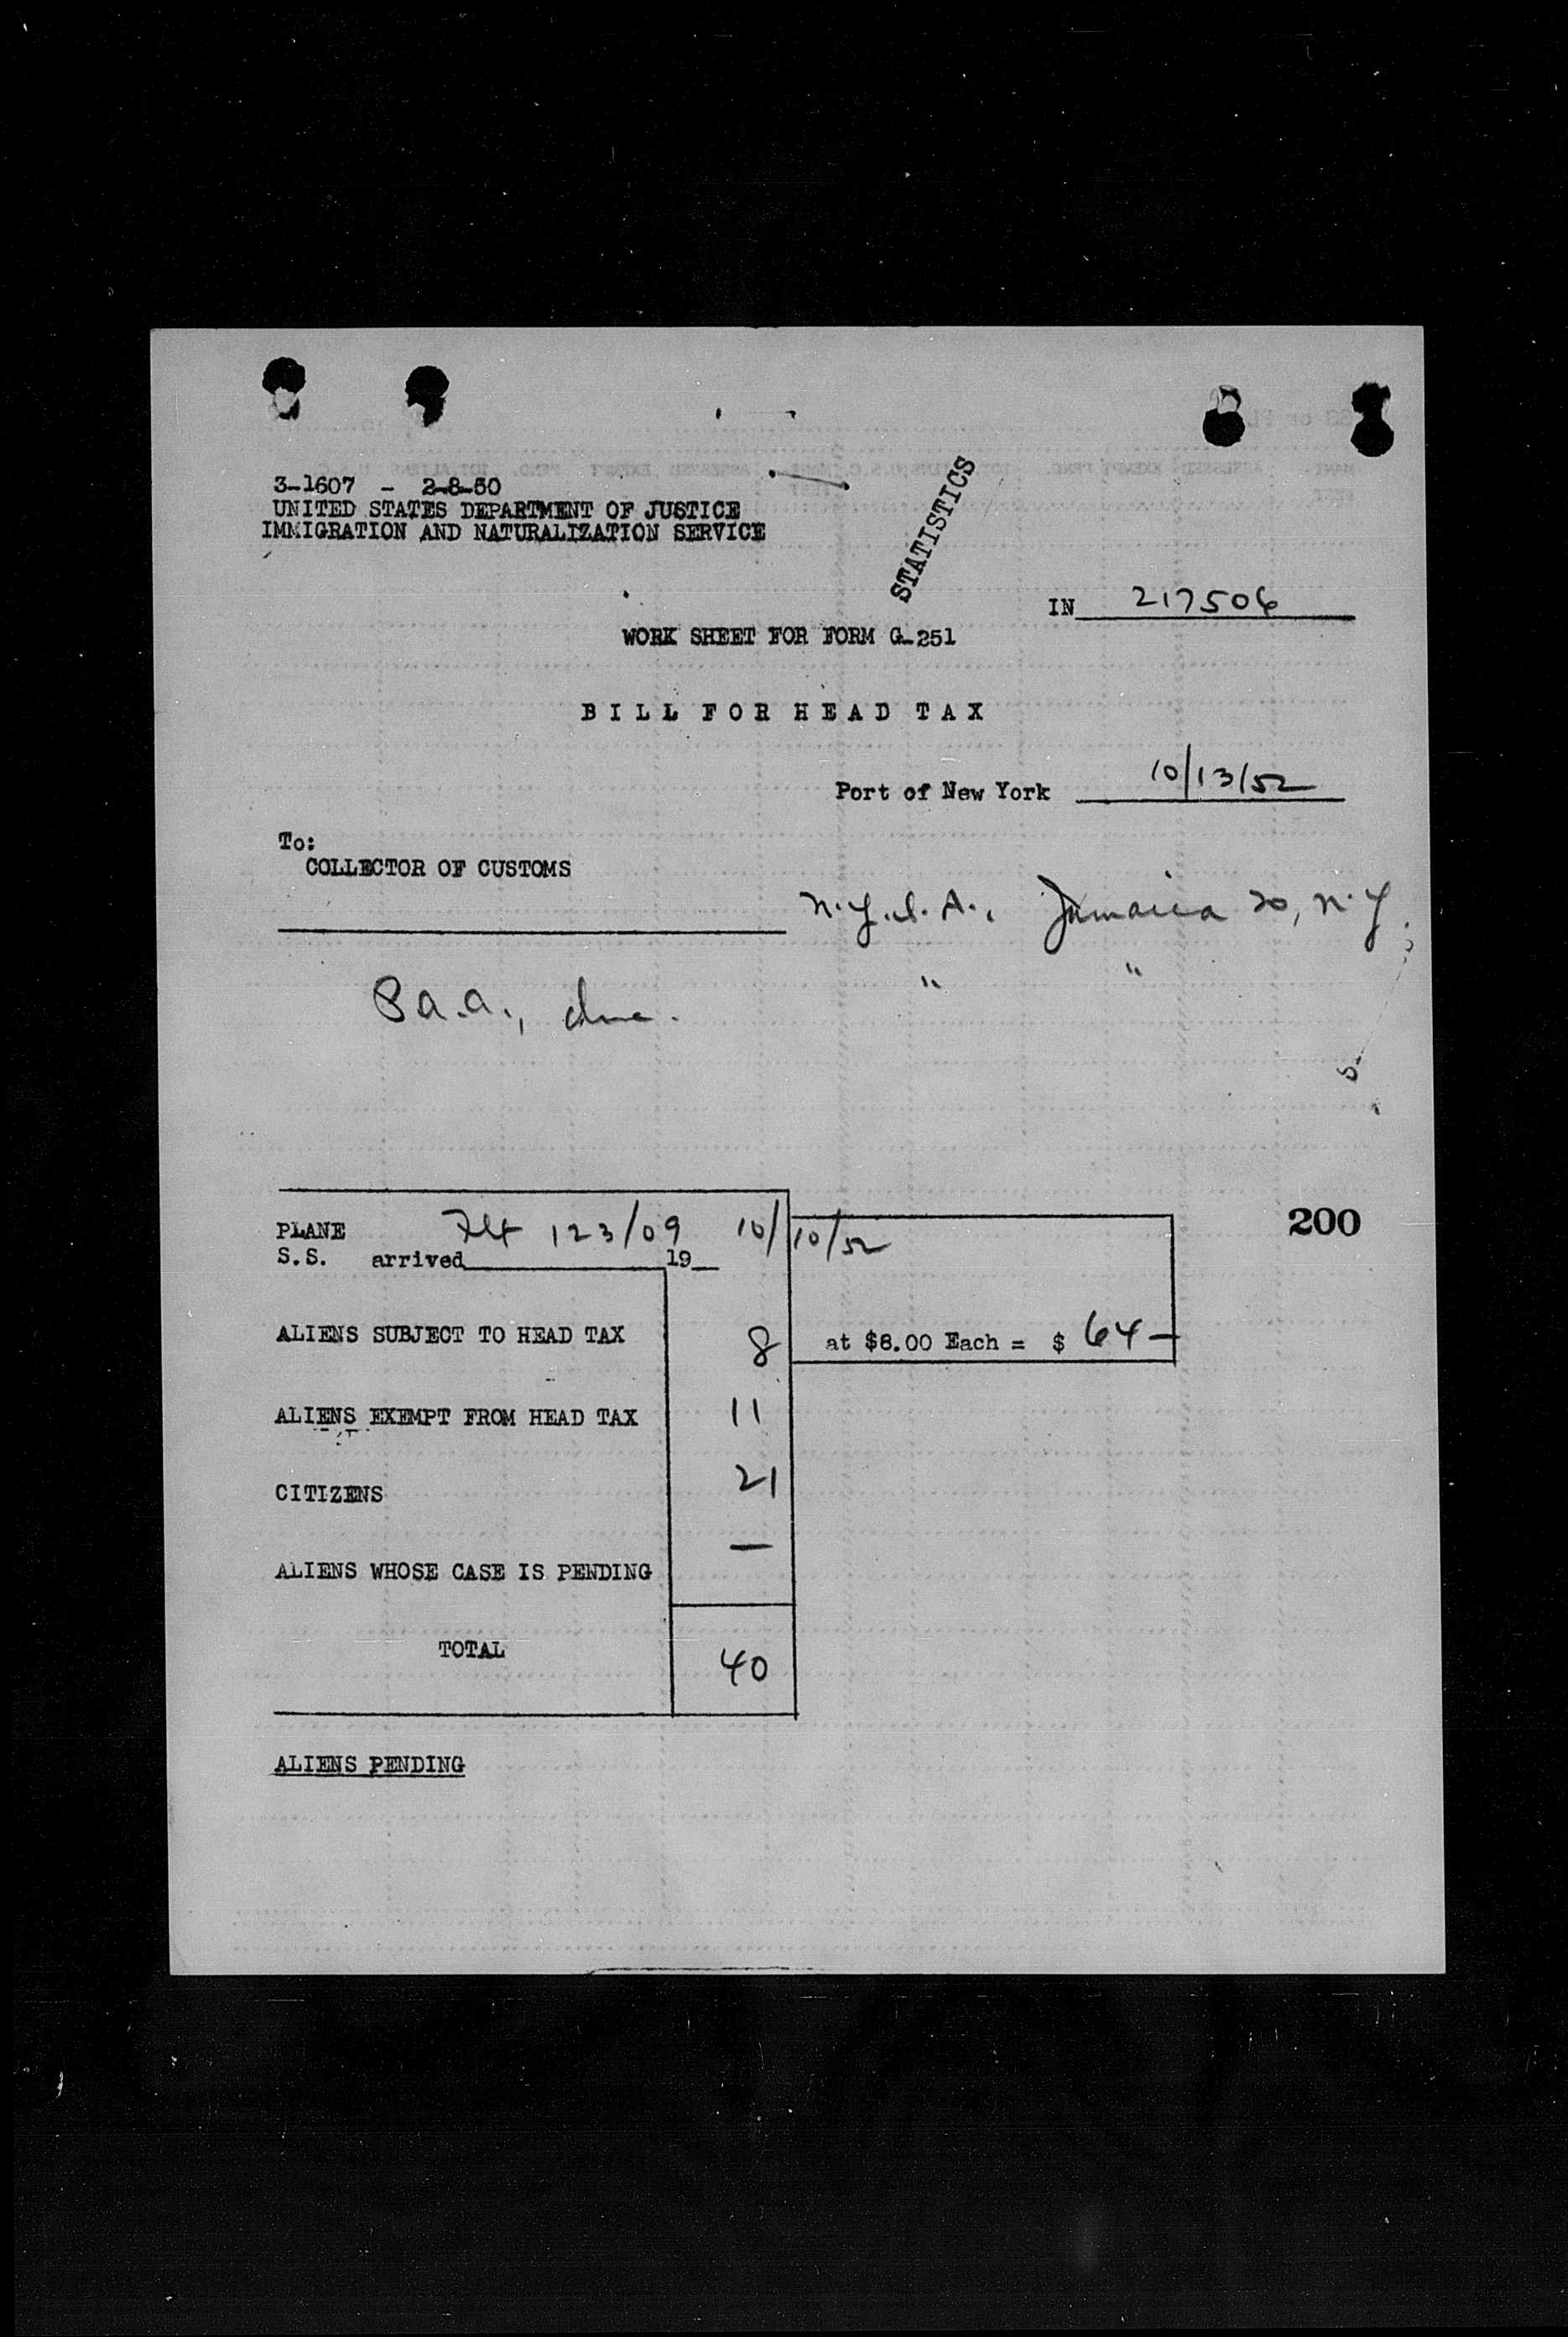 3-1607 - 2-8-50
UNITED STATES DEPARTMENT OF JUSTICE
IMMIGRATION AND NATURALIZATION SERVICE
STATISTICS
IN 217506
WORK SHEET FOR FORM G-251
BILL FOR HEAD TAX
Port of New York 10/13/52
To:
COLLECTOR OF CUSTOMS
N.Y.I.A., Jamaica 20, N.Y.
P.a.a., Inc. " "
200
PLANE Flt 123/09 10/10/52
S.S. arrived 19
ALIENS SUBJECT TO HEAD TAX 8 at $8.00 Each = $ 64-
ALIENS EXEMPT FROM HEAD TAX 11
CITIZENS 21
ALIENS WHOSE CASE IS PENDING —
TOTAL 40
ALIENS PENDING